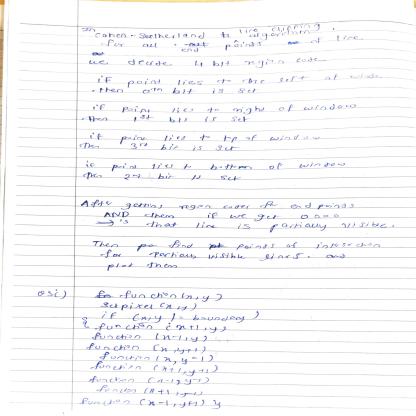 In
Cohen-Sutherland line clipping algorithm
for all end points of line
we decide 4 bit region code
if point lies to the left of window
then 0th bit is set
if point lies to right of window
then 1st bit is set
if point lies to top of window
then 3rd bit is set
if point lies to bottom of window
then 2nd bit is set
After getting region codes for end points
AND them if we get 0000
→ that line is partially visible.
Then find points of intersection
for partially visible lines. and
plot them
Q5i) function (x, y)
setpixel (x, y)
if (x, y != boundary)
{ function (x+1, y)
function (x-1, y)
function (x, y+1)
function (x, y-1)
function (x+1, y+1)
function
function
function (x-1, y+1) }